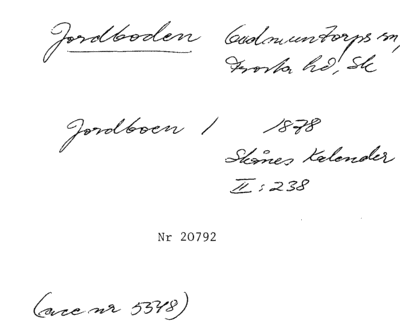 Jordboden Gudmuntorps sn,
Frosta hd, Sk
Jordboen / 1878
Skånes Kalender
II : 238
Nr 20792
(acc nr 5548)